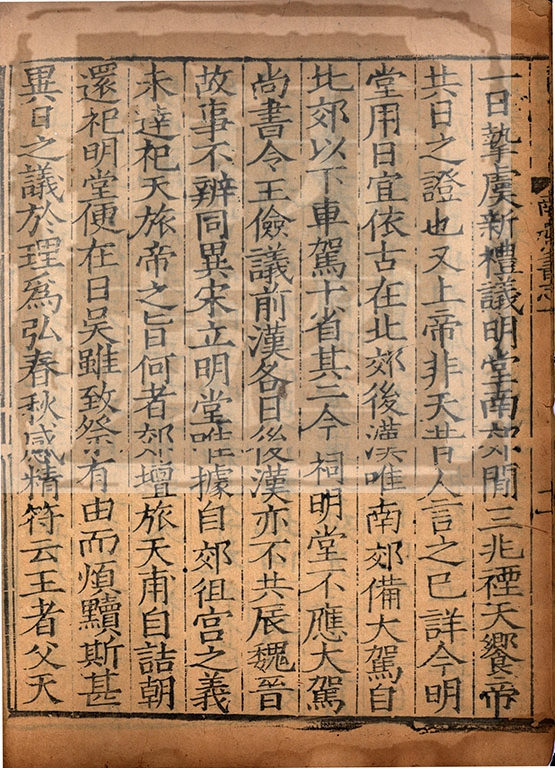 一日摯虞新禮議明堂南郊閒三兆禋天饗帝
共日之證也又上帝非天昔人言之已詳今明
堂用日宜依古在北郊後漢唯南郊備大駕自
北郊以下車駕十省其二今祠明堂不應大駕
尚書令王儉議前漢各日後漢亦不共辰魏晉
故事不辨同異宋立明堂唯據自郊徂宮之義
未達祀天旅帝之旨何者郊壇旅天甫自詰朝
還祀明堂便在日昃雖致祭有由而煩黷斯甚
異日之議於理爲弘春秋感精符云王者父天